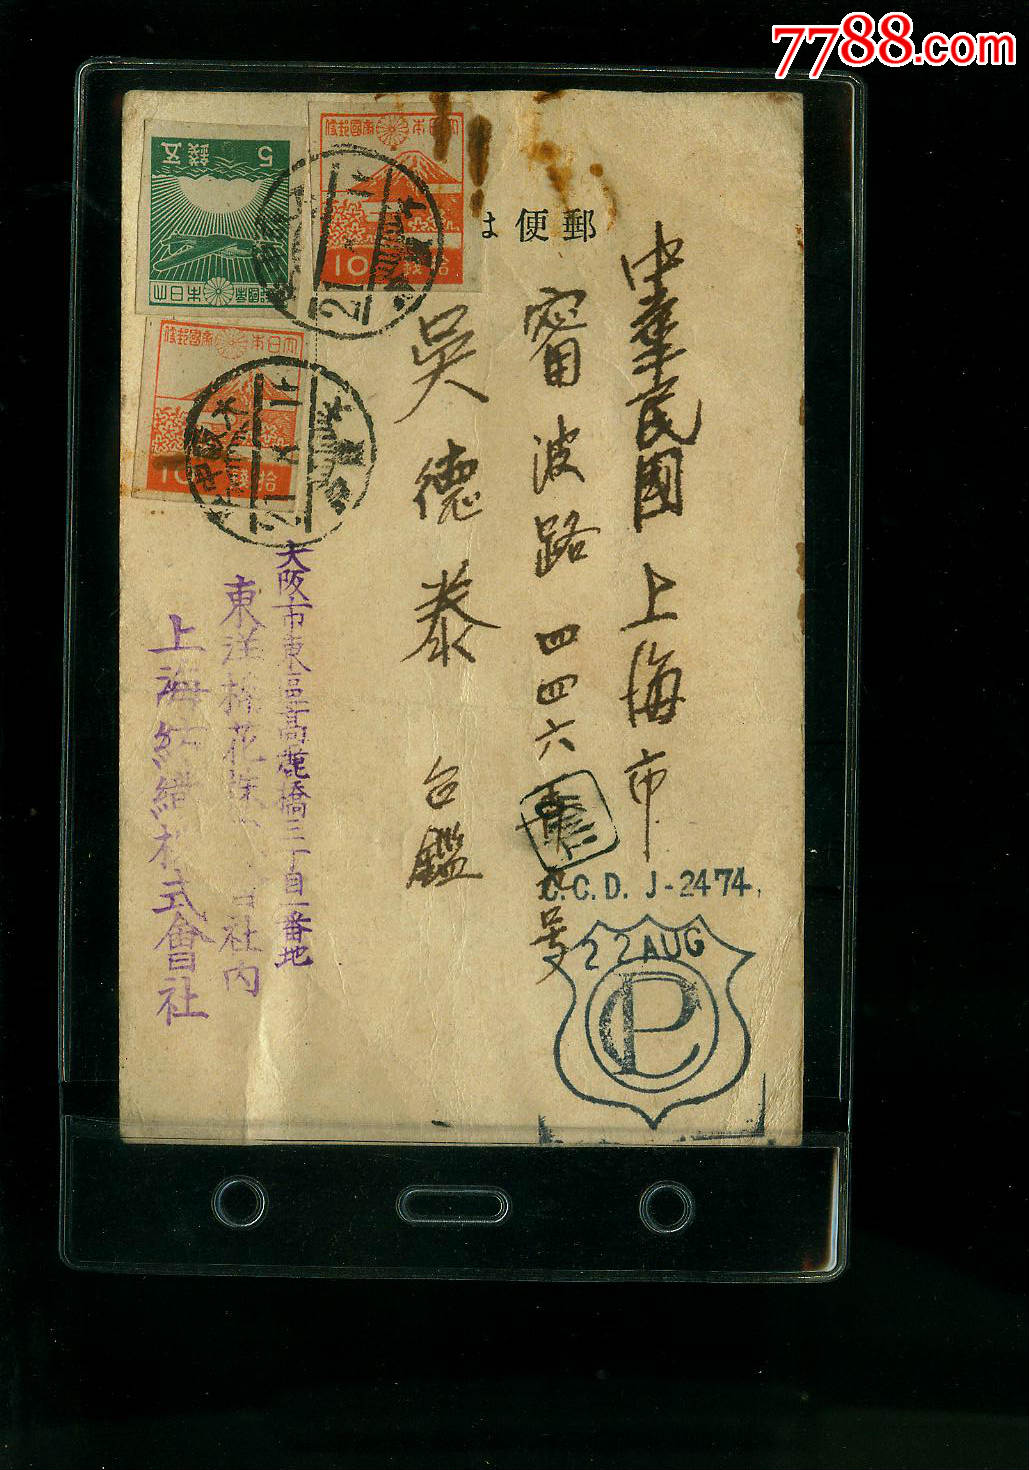 7788.com
5 錢五
大日本帝國郵便
10 拾錢
大日本帝國郵便
10 拾錢
郵便は
中華民國上海市
甯波路四四六
号
吳德泰 台鑑
大阪市東區高麗橋三丁目一番地
東洋棉花株 會社内
上海紡績株式會社
大阪中央
21
C.C.D. J-2474
22 AUG
CP